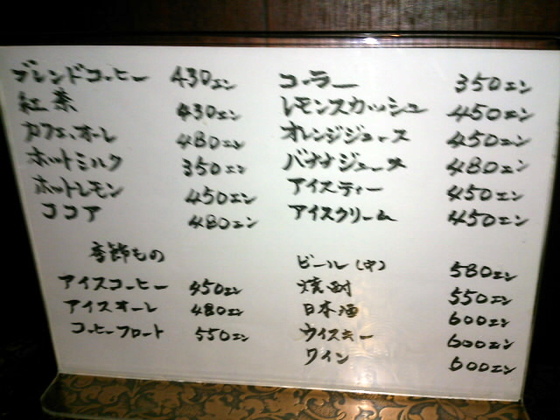 ブレンドコーヒー 430エン
紅茶 430エン
カフェ、オーレ 480エン
ホットミルク 350エン
ホットレモン 450エン
ココア 480エン
季節もの
アイスコーヒー 450エン
アイスオーレ 480エン
コーヒーフロート 550エン
コーラー 350エン
レモンスカッシュ 450エン
オレンジジュース 450エン
バナナジュース 480エン
アイスティー 450エン
アイスクリーム 450エン
ビール(中) 580エン
焼酎 550エン
日本酒 600エン
ウイスキー 600エン
ワイン 600エン